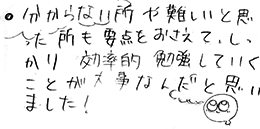 。分からない所や難しいと思
った所も要点をおさえて、しっ
かり 効率的 勉強していく
ことが大事なんだと思い
ました!